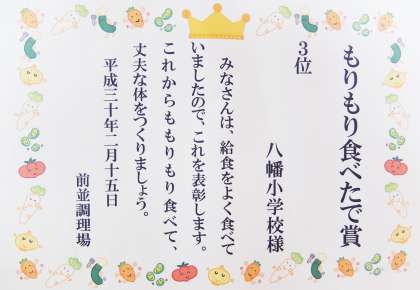 もりもり食べたで賞
3位
八幡小学校様
みなさんは、給食をよく食べて
いましたので、これを表彰します。
これからももりもり食べて、
丈夫な体をつくりましょう。
平成三十年二月十五日
前並調理場